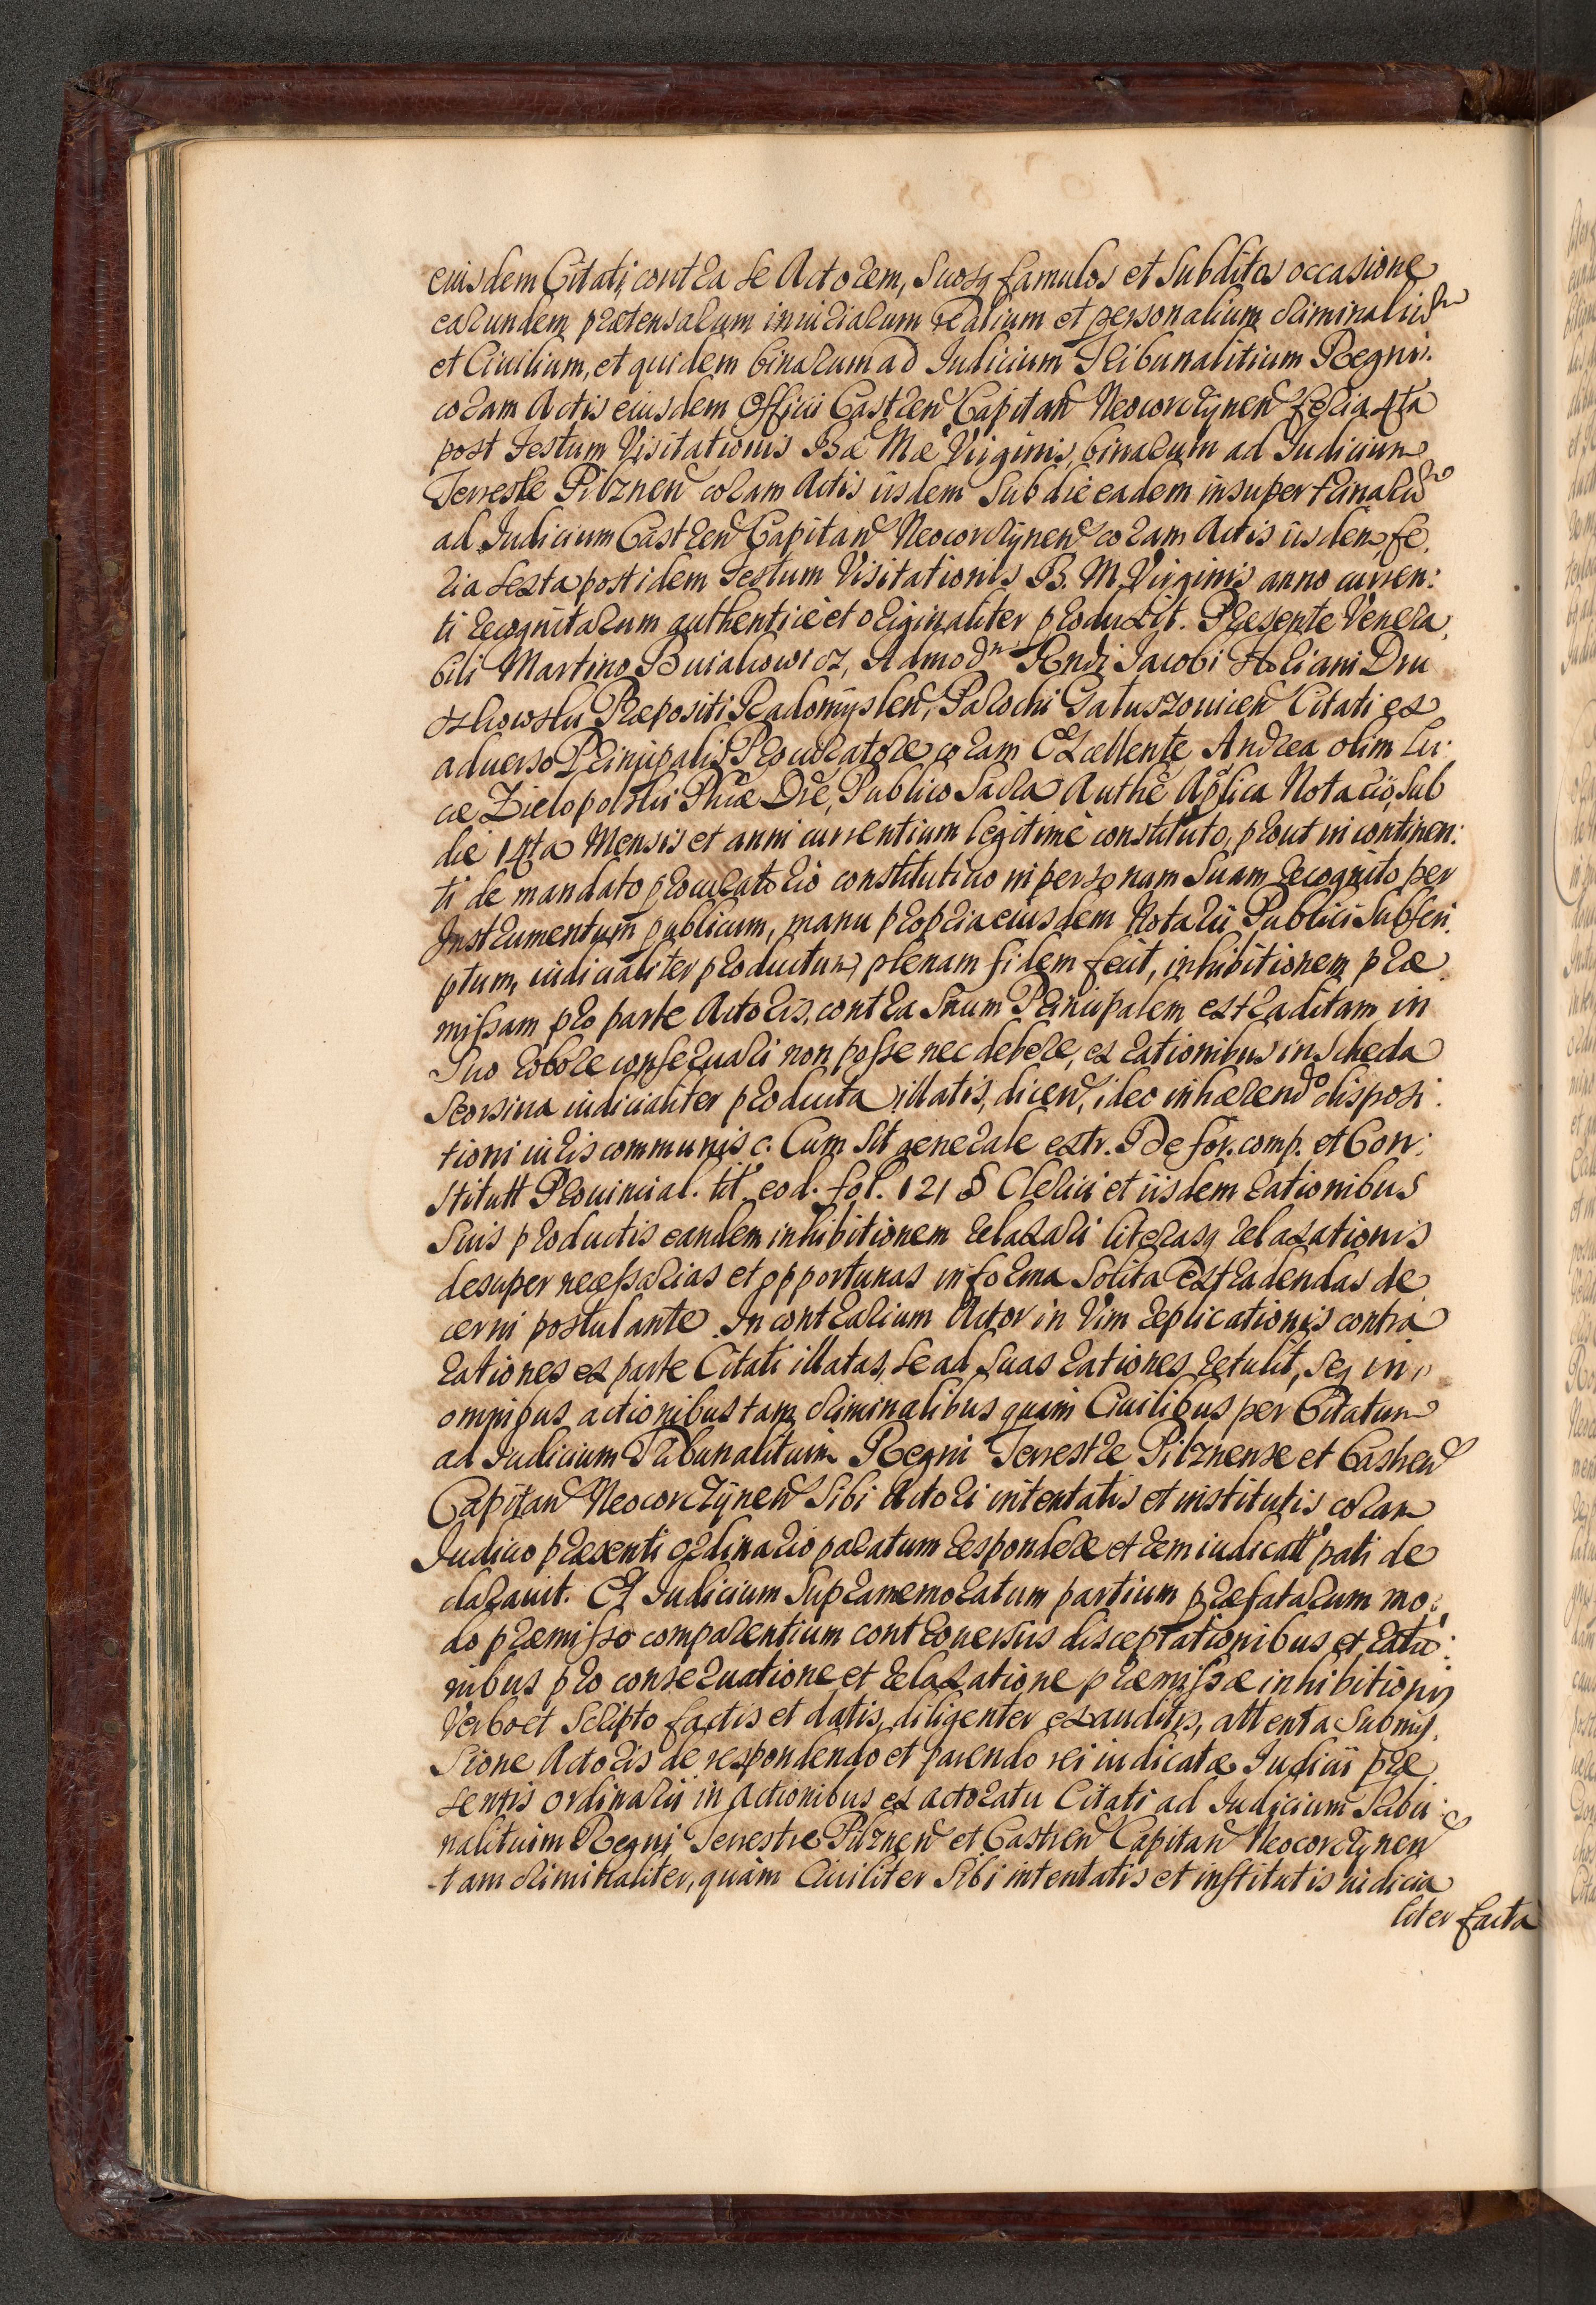 eiusdem Citati, contra se Actorem, Suosq famulos et Subditos occasione
earundem prætensarum iniuriarum realium et personalium criminaliu
et Ciuilium, et quidem binarum ad Iudicium Tribunalitium Regni.
coram Actis eiusdem Officii Castren Capitan Neocorczynen feria 4ta
post Festum Visitationis Bæ Mæ Virginis, binarum ad Iudicium
Terrestre Pilznen coram Actis iisdem Sub die eadem insuper trinaru
ad Iudicium Castren Capitan Neocorczynen coram Actis iisdem fe,
ria Sexta post idem Festum Visitationis B. M. Virginis anno curren:
ti recognitarum authenticè et originaliter produxit. Præsente Venera,
bili Martino Buiakowicz, Admodn Rndi Iacobi Floriani Dru
szkowski Præpositi Radomyslen, Parochi Gatuszouicen Citati ex
aduerso Principalis Procuratore coram Excellente Andrea olim Lu:
cæ Zielopolski Phiæ Dre, Publico Sacra Authe Aplica Notario, Sub
die 14ta Mensis et anni currentium legitimè constituto, prout in continen:
ti de mandato procuratorio constitutiuo in personam Suam recognito per
Instrumentum publicum, manu propria eiusdem Notarii Publici Subscri,
ptum, iudicialiter productum, plenam fidem fecit, inhibitionem præ
missam pro parte Actoris, contra Suum Principalem extraditam in
Suo robore conseruari non posse nec debere, ex rationibus in Scheda
Seorsiua iudicialiter producta illatis, dicen, ideo inhærendo disposi:
tioni iuris communis c. Cum Sit generale extr. De for. comp. et Con:
stitutt Prouincial. tit. eod. fol. 121 § Clerici et iisdem rationibus
Suis productis eandem inhibitionem relaxari literasq relaxationis
desuper necessarias et opportunas in forma Solita extradendas de,
cerni postulante. In contrarium Actor in Vim replicationis contra
rationes ex parte Citati illatas, Se ad Suas rationes retulit, Seq in
omnibus actionibus tam criminalibus quàm Ciuilibus per Citatum
ad Iudicium Tribunalitium Regni Terrestre Pilznense et Castren
Capitan Neocorczynen Sibi Actori intentatis et institutis coram
Iudicio præsenti ordinario paratum respondere et rem iudicatt pati de
clarauit. Et Iudicium Supramemoratum partium præfatarum mo,
do præmisso comparentium controuersiis disceptationibus et ratio:
nibus pro conseruatione et relaxatione præmissæ inhibitionis
Verbo et Scripto factis et datis, diligenter exauditis, attenta Submis,
Sione Actoris de respondendo et parendo rei iudicatæ Iudicii præ,
sentis ordinarii in Actionibus ex actoratu Citati ad Iudicium Tribu:
nalitium Regni Terrestre Pilznen et Castren Capitan Neocorczynen
tam criminaliter, quàm Ciuiliter Sibi intentatis et institutis iudicia
liter facta